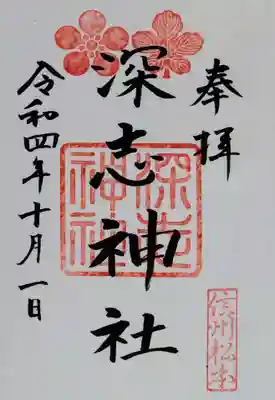 奉拝
深志神社
深志神社
信州松本
令和四年十月一日